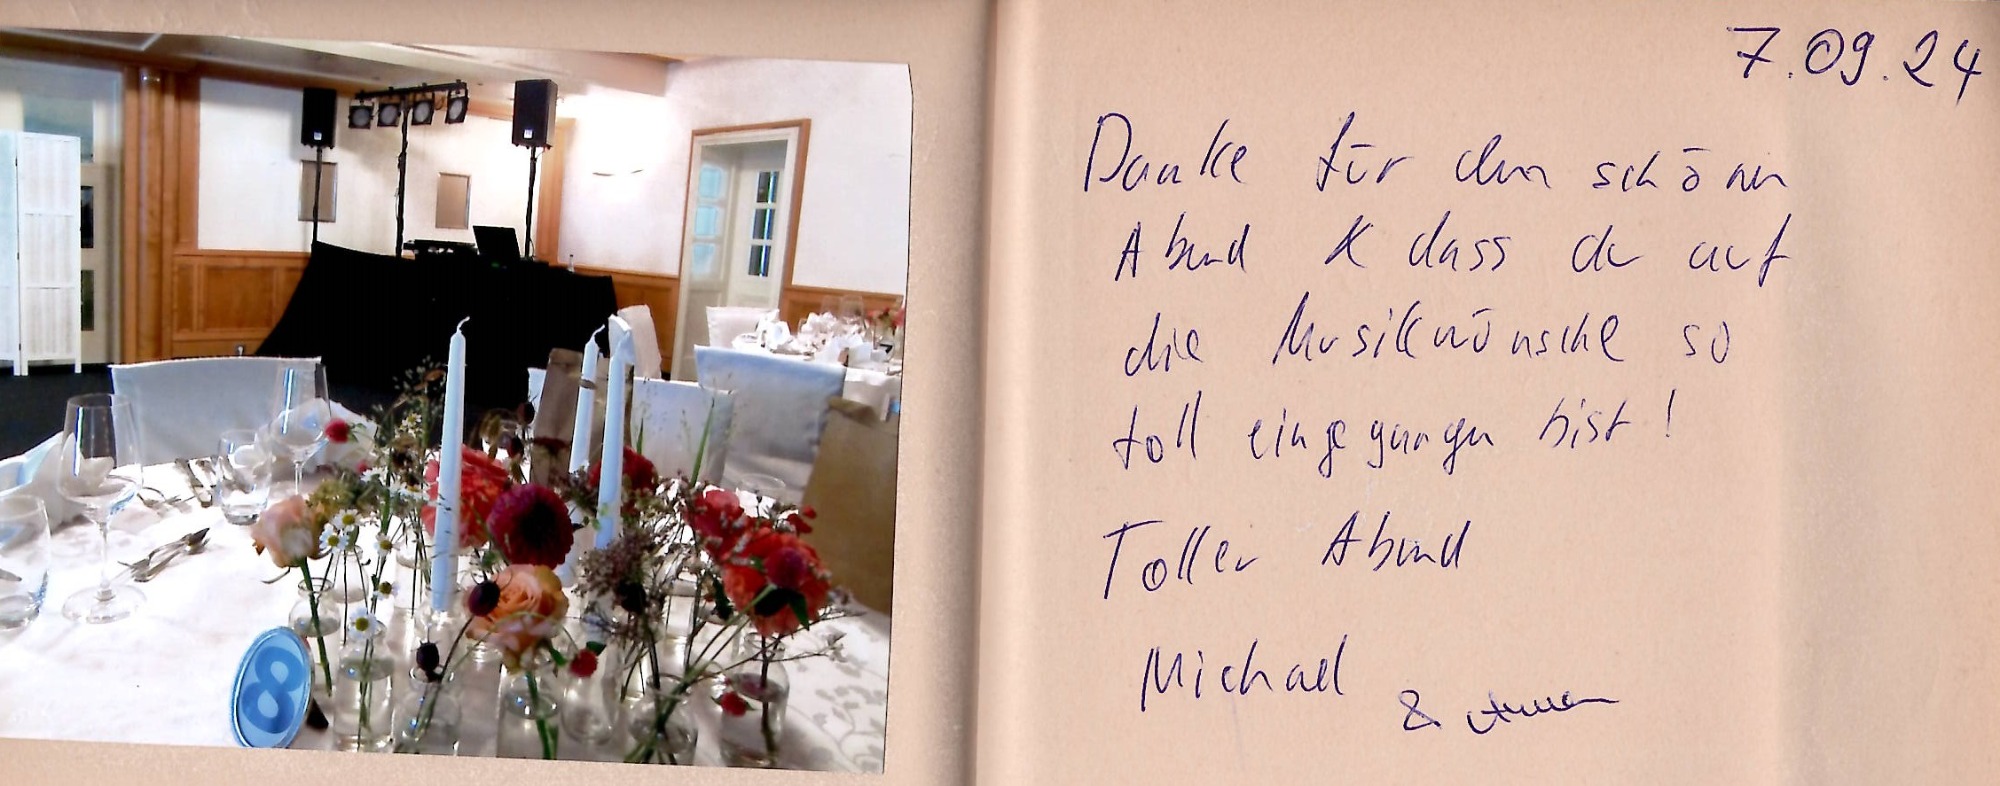 8
7.09.24
Danke für den schönen
Abend & dass du auf
die Musikwünsche so
toll eingegangen bist!
Toller Abend
Michael
&